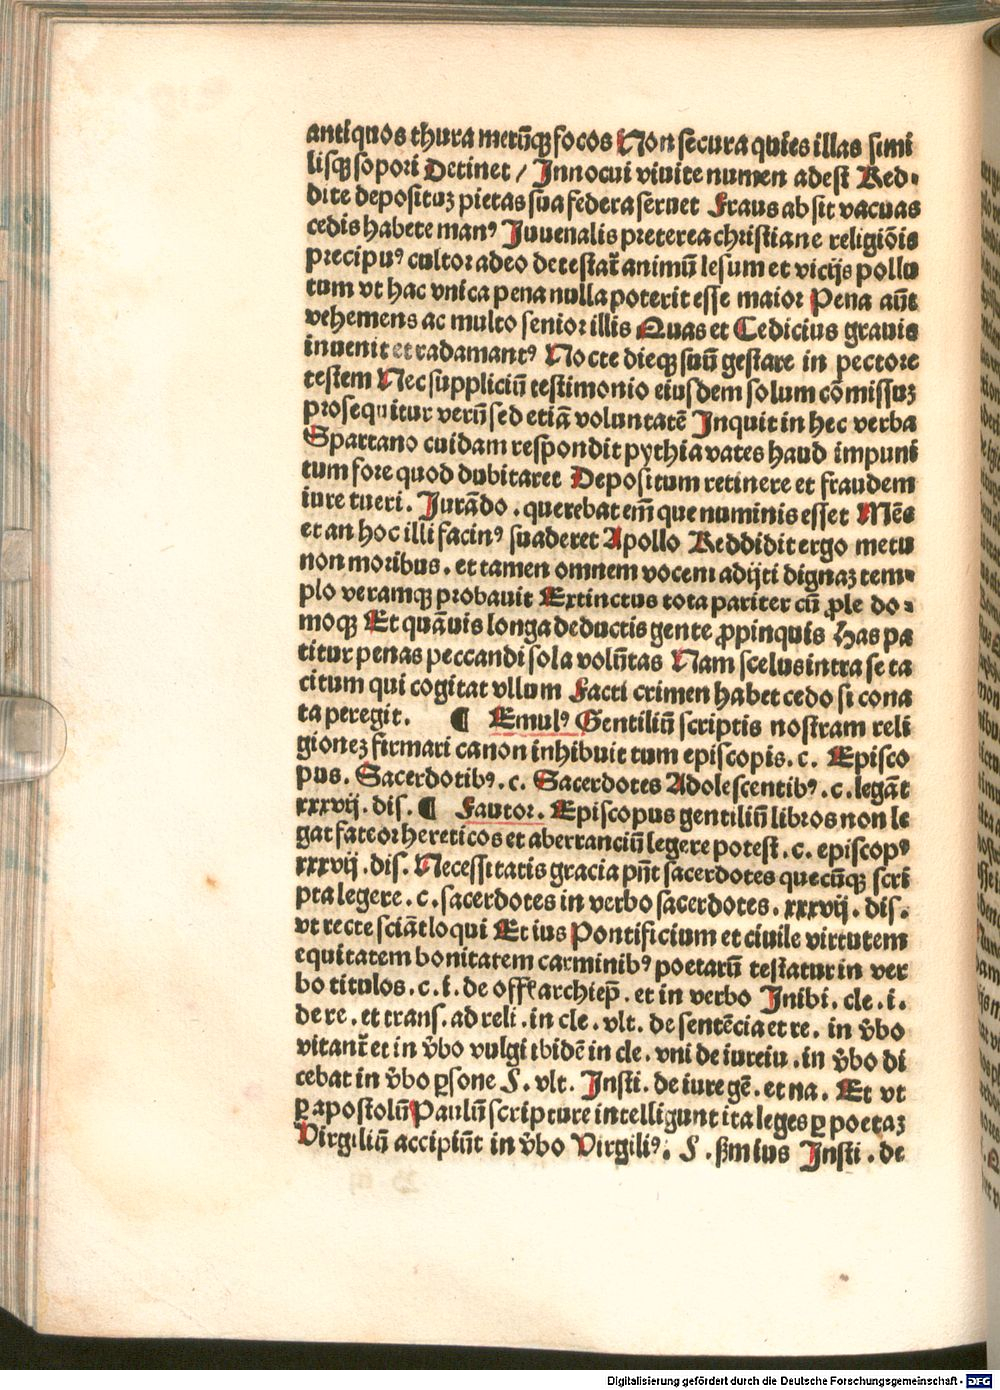 antiquos thura merūqꝫ focos Non secura quies illas simi
lisqꝫ sopori Detinet / Innocui viuite numen adest Red-
dite depositūꝫ pietas sua federa seruet Fraus absit vacuas
cedis habete manꝰ Juuenalis preterea christiane religiōis
precipuꝰ cultor adeo detestat̄ animū lesum et vicijs pollu
tum vt hac vnica pena nulla poterit esse maior Pena aūt
vehemens ac multo senior illis Quas et Cedicius grauis
inuenit et radamantꝰ Nocte dieqꝫ suū gestare in pectore
testem Nec suppliciū testimonio eiusdem solum cōmissuꝫ
prosequitur verū sed etiā voluntatē Inquit in hec verba
Spartano cuidam respondit pythia vates haud impuni
tum fore quod dubitaret Depositum retinere et fraudem
iure tueri. Jurādo. querebat em̄ que numinis esset Mēs
et an hoc illi facinꝰ suaderet Apollo Reddidit ergo metu
non moribus. et tamen omnem vocem adijti dignaꝫ tem-
plo veramqꝫ probauit Extinctus tota pariter cū ꝓle do-
moqꝫ Et quāuis longa deductis gente ꝓpinquis Has pa
titur penas peccandi sola volūtas Nam scelus intra se ta
citum qui cogitat vllum Facti crimen habet cedo si cona
ta peregit. ¶ Emulꝰ Gentiliū scriptis nostram reli
gioneꝫ firmari canon inhibuit tum episcopis. c. Episco
pus. Sacerdotibꝰ. c. Sacerdotes Adolescentibꝰ. c. legāt
xxxvij. dis. ¶ Fautor. Episcopus gentiliū libros non le
gat fateor hereticos et aberranciū legere potest. c. episcopꝰ
xxxvij. dis. Necessitatis gracia pn̄t sacerdotes quecūqꝫ scri
pta legere. c. sacerdotes in verbo sacerdotes. xxxvij. dis.
vt recte sciāt loqui Et ius Pontificium et ciuile virtutem
equitatem bonitatem carminibꝰ poetarū testatur in ver
bo titulos. c. i. de off̄ archiep̄. et in verbo Inibi. cle. i.
de re. et trans. ad reli. in cle. vlt. de sentēcia et re. in v̄bo
vitant̄ et in v̄bo vulgi ibidē in cle. vni de iureiu. in v̄bo di
cebat in v̄bo ꝑsone §. vlt. Insti. de iure gē. et na. Et vt
ꝑ apostolū Paulū scripture intelligunt ita leges ꝑ poetaꝫ
Virgiliū accipiūt in v̄bo Virgiliꝰ. §. ßm ius Insti. de
Digitalisierung gefördert durch die Deutsche Forschungsgemeinschaft - DFG